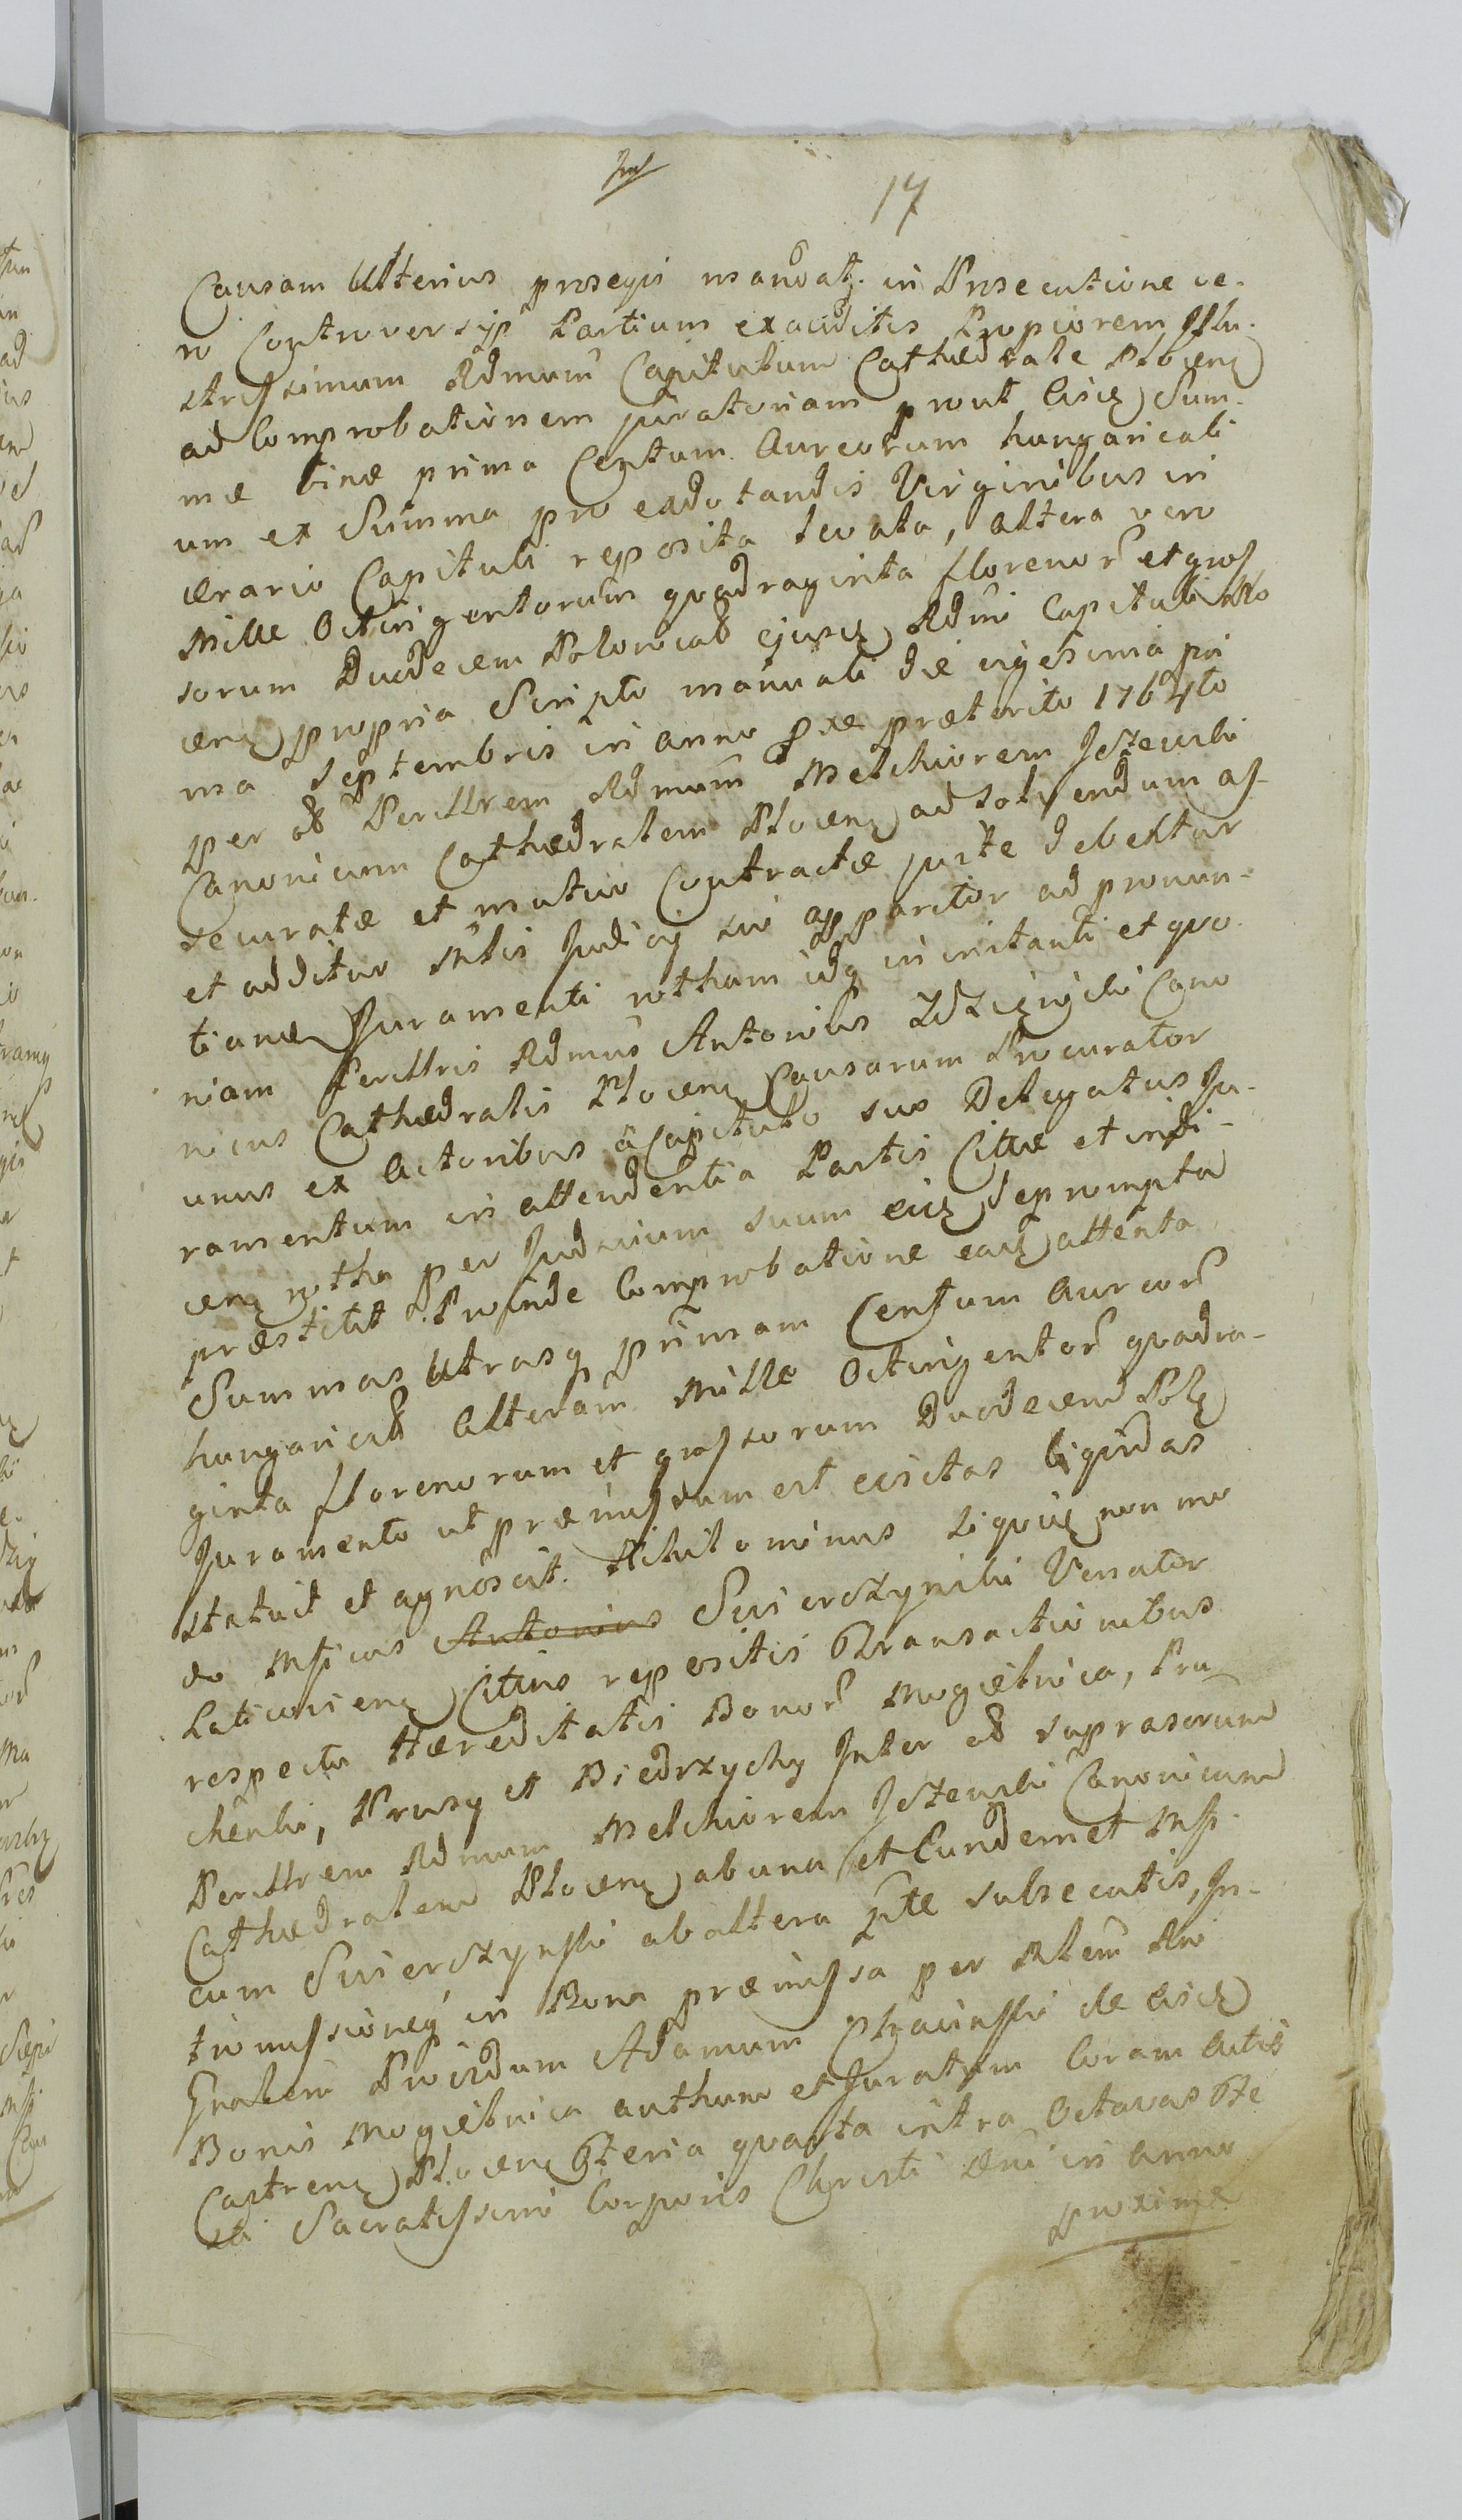 17
Causam Ulterius proseqvi mandat. in Prosecutione ve-
ro Controversijs Partium exauditis Propiorem Illu-
strissimum Rdmum Capitulum Cathædrale Plocen
ad Comprobationem juratoriam prout Eisd Sum-
mæ binæ prima Centum Aureorum hungaricali-
um ex Summa pro exdotandis Virginibus in
ærario Capituli reposita levata, altera vero
Mille Octingentorum qvadraginta florenor et gros
sorum Duodecem Polonical ejusd Rdmi Capituli Plo
cen propria Scripto manuali die vigesima pri
ma Septembris in anno pxe præterito 1764to
Per ol Perillrem Rdmum Melchiorem Jeżewski
Canonicum Cathædralem Plocen ad solvendum as-
securatæ et mutuo Contractæ juste debentur
et additur Mtis Judicij sui apparitor ad pronun-
tiand Juramenti rotham idq in instanti et quo-
niam Perillris Rdmus Antonius Zdzięnicki Cano
nicus Cathædralis Plocen Causarum Procurator
unus ex Actoribus a Capitulo suo Delegatus Ju-
ramentum in attendentia Partis Cittæ et indi-
cen rotha per Judicium suum eid deprompta
præstitit. Proinde Comprobatione ead attenta
Summas Utrasq primam Centum Aureor
hungarical Alteram Mille Octingentor qvadra-
ginta florenorum et grossorum Duodecem Pol
Juramento ut præmissum est evictas liqvidas
statuit et agnoscit. Nihilominus Siqvid non mo
do Mficus Antonius Swierczynski Venator
Laticovien Cittus repositis Transactionibus
respectu Hæreditatis Bonor Mogielnica, Pru
chenki, Prusy et Biedrzychy Inter ol suprascrum
Perillrem Rdmum Melchiorem Jeżewski Canonicum
Cathædralem Plocen ab una et Eundemet Mfi-
cum Swierczynski ab altera pte subsecutis, In-
tromissioneq in Bona præmissa per Mtem Rni
Gnalem Providum Adamum de Eisd
Bonis Mogielnica authum et Juratum Coram Actis
Castren Plocen Feria qvarta intra Octavas Fe
sti Sacratissimi Corporis Christi Dni in anno
proxime